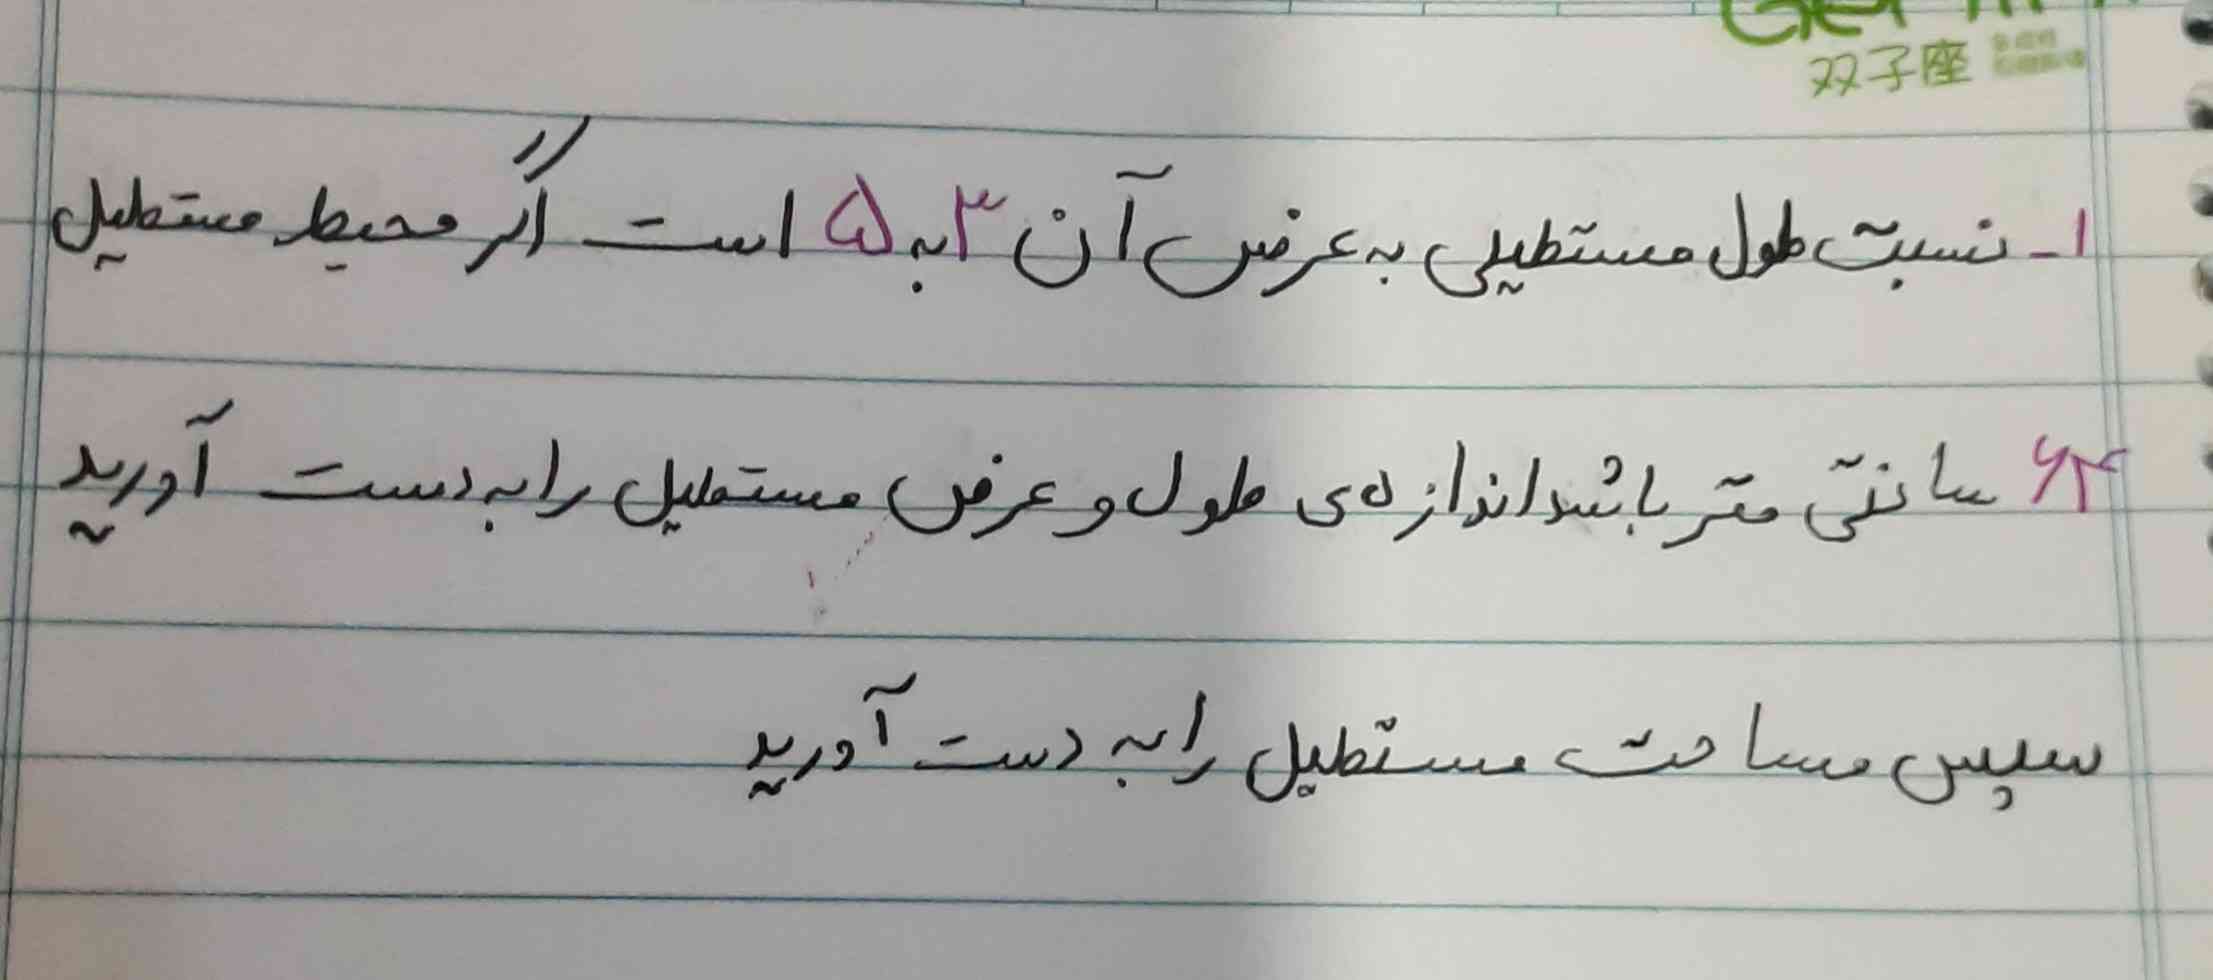 双子座
۱- نسبت طول مستطیلی به عرض آن ۳ به ۵ است اگر محیط مستطیل
۶۴ سانتی متر باشد اندازه ی طول و عرض مستطیل را به دست آورید
سپس مساحت مستطیل را به دست آورید